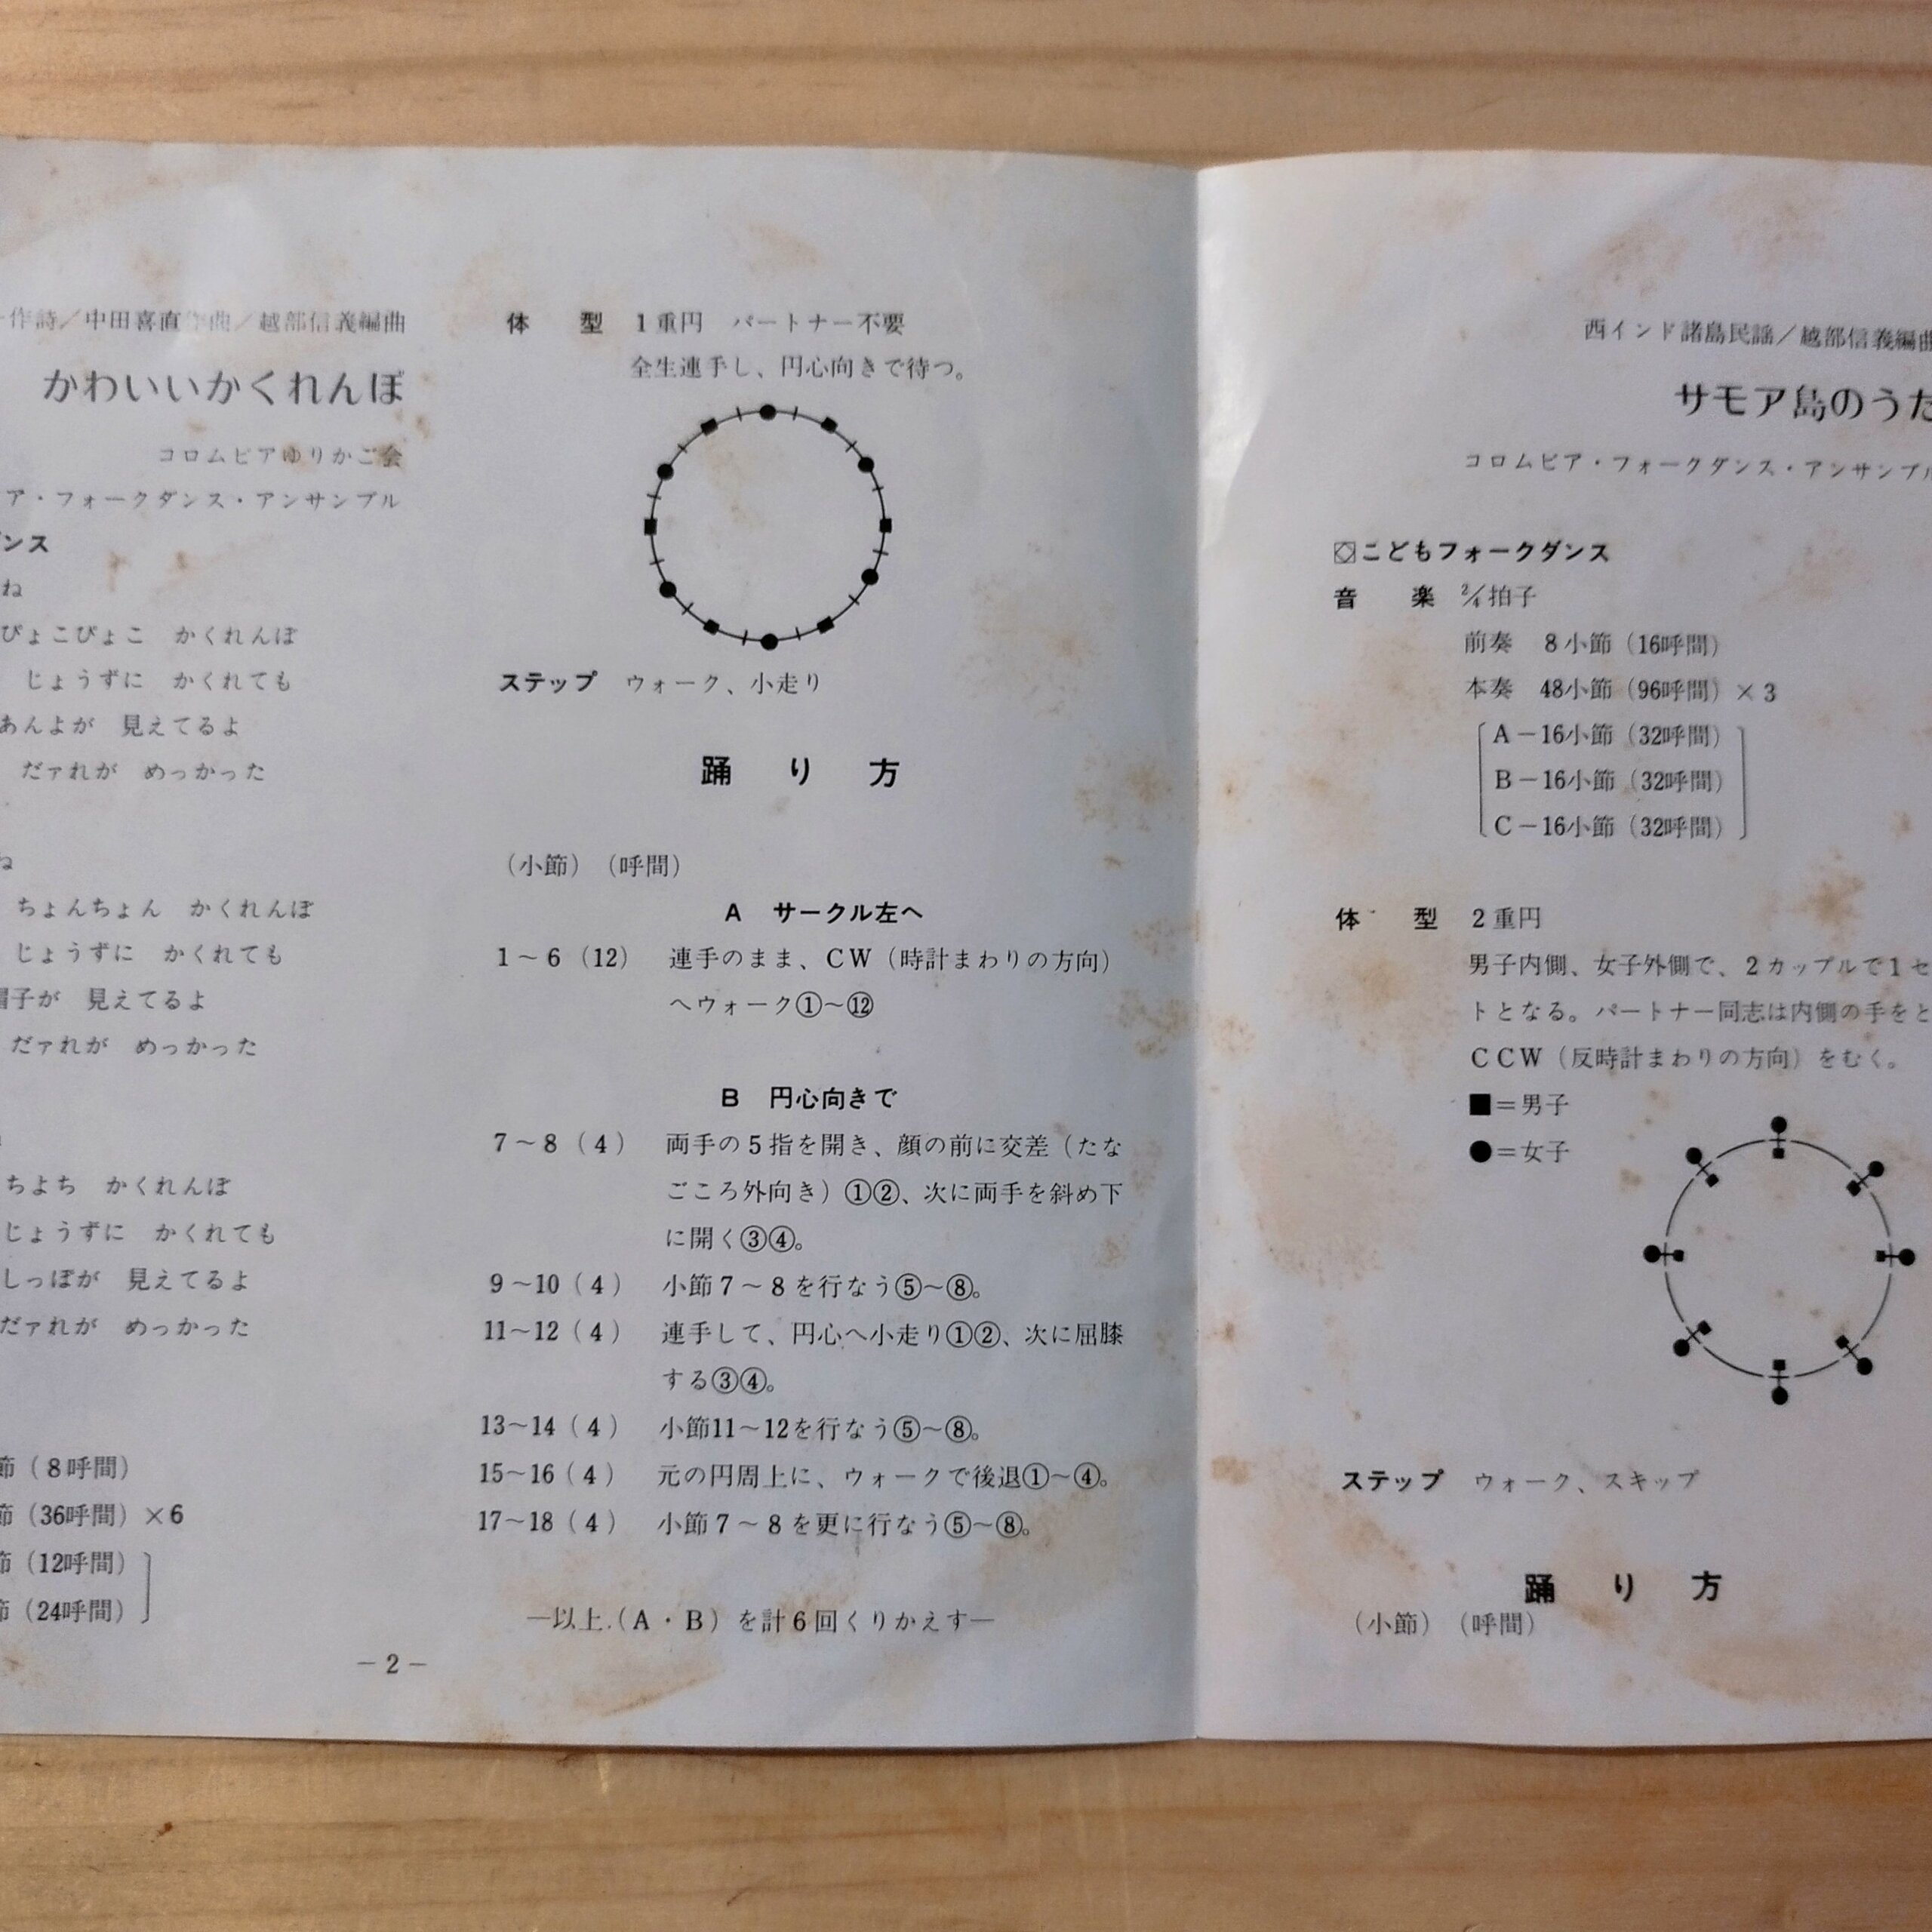 作詩／中田喜直作曲／越部信義編曲
かわいいかくれんぼ
コロムビアゆりかご会
ア・フォークダンス・アンサンブル
ンス
ね
ぴょこぴょこ　かくれんぼ
じょうずに　かくれても
あんよが　見えてるよ
だァれが　めっかった
ね
ちょんちょん　かくれんぼ
じょうずに　かくれても
帽子が　見えてるよ
だァれが　めっかった
ちよち　かくれんぼ
じょうずに　かくれても
しっぽが　見えてるよ
だァれが　めっかった
節（8呼間）
節（36呼間）×6
節（12呼間）
節（24呼間）
－2－
体　型　1重円　パートナー不要
全生連手し、円心向きで待つ。
ステップ　ウォーク、小走り
踊り方
（小節）（呼間）
A　サークル左へ
1～6（12）　連手のまま、CW（時計まわりの方向）
へウォーク①～⑫
B　円心向きで
7～8（4）　両手の5指を開き、顔の前に交差（たな
ごころ外向き）①②、次に両手を斜め下
に開く③④。
9～10（4）　小節7～8を行なう⑤～⑧。
11～12（4）　連手して、円心へ小走り①②、次に屈膝
する③④。
13～14（4）　小節11～12を行なう⑤～⑧。
15～16（4）　元の円周上に、ウォークで後退①～④。
17～18（4）　小節7～8を更に行なう⑤～⑧。
―以上（A・B）を計6回くりかえす―
西インド諸島民謡／越部信義編曲
サモア島のうた
コロムビア・フォークダンス・アンサンブル
こどもフォークダンス
音　楽　2/4拍子
前奏　8小節（16呼間）
本奏　48小節（96呼間）×3
A－16小節（32呼間）
B－16小節（32呼間）
C－16小節（32呼間）
体　型　2重円
男子内側、女子外側で、2カップルで1セ
トとなる。パートナー同志は内側の手をと
CCW（反時計まわりの方向）をむく。
■＝男子
●＝女子
ステップ　ウォーク、スキップ
踊り方
（小節）（呼間）